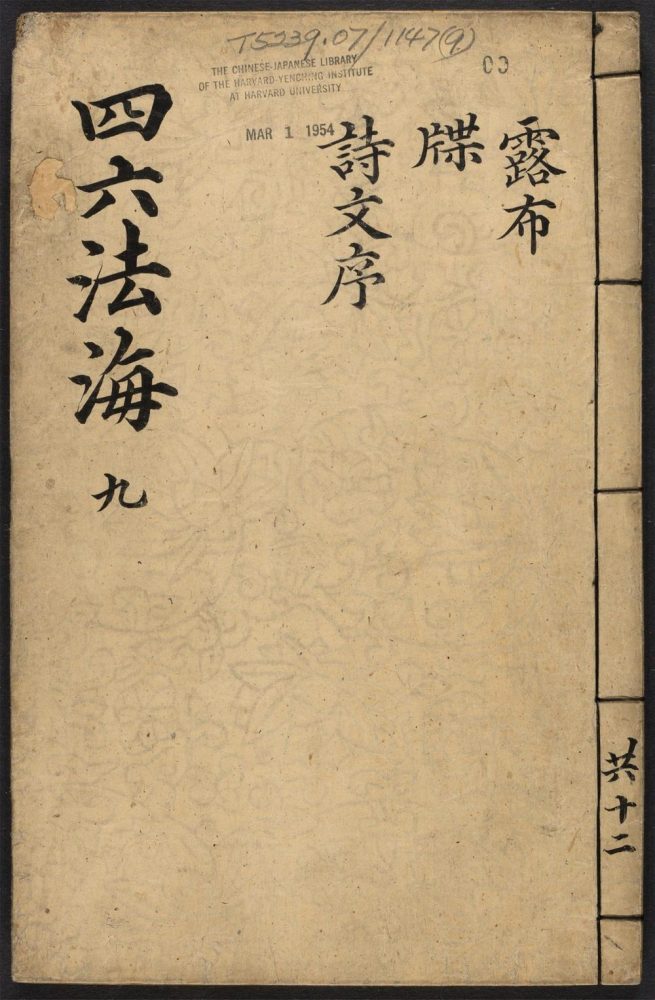 T5239.07/1147(9)
THE CHINESE-JAPANESE LIBRARY
OF THE HARVARD-YENCHING INSTITUTE
AT HARVARD UNIVERSITY
MAR 1 1954
露布
牒
詩文序
四六法海 九
共十二